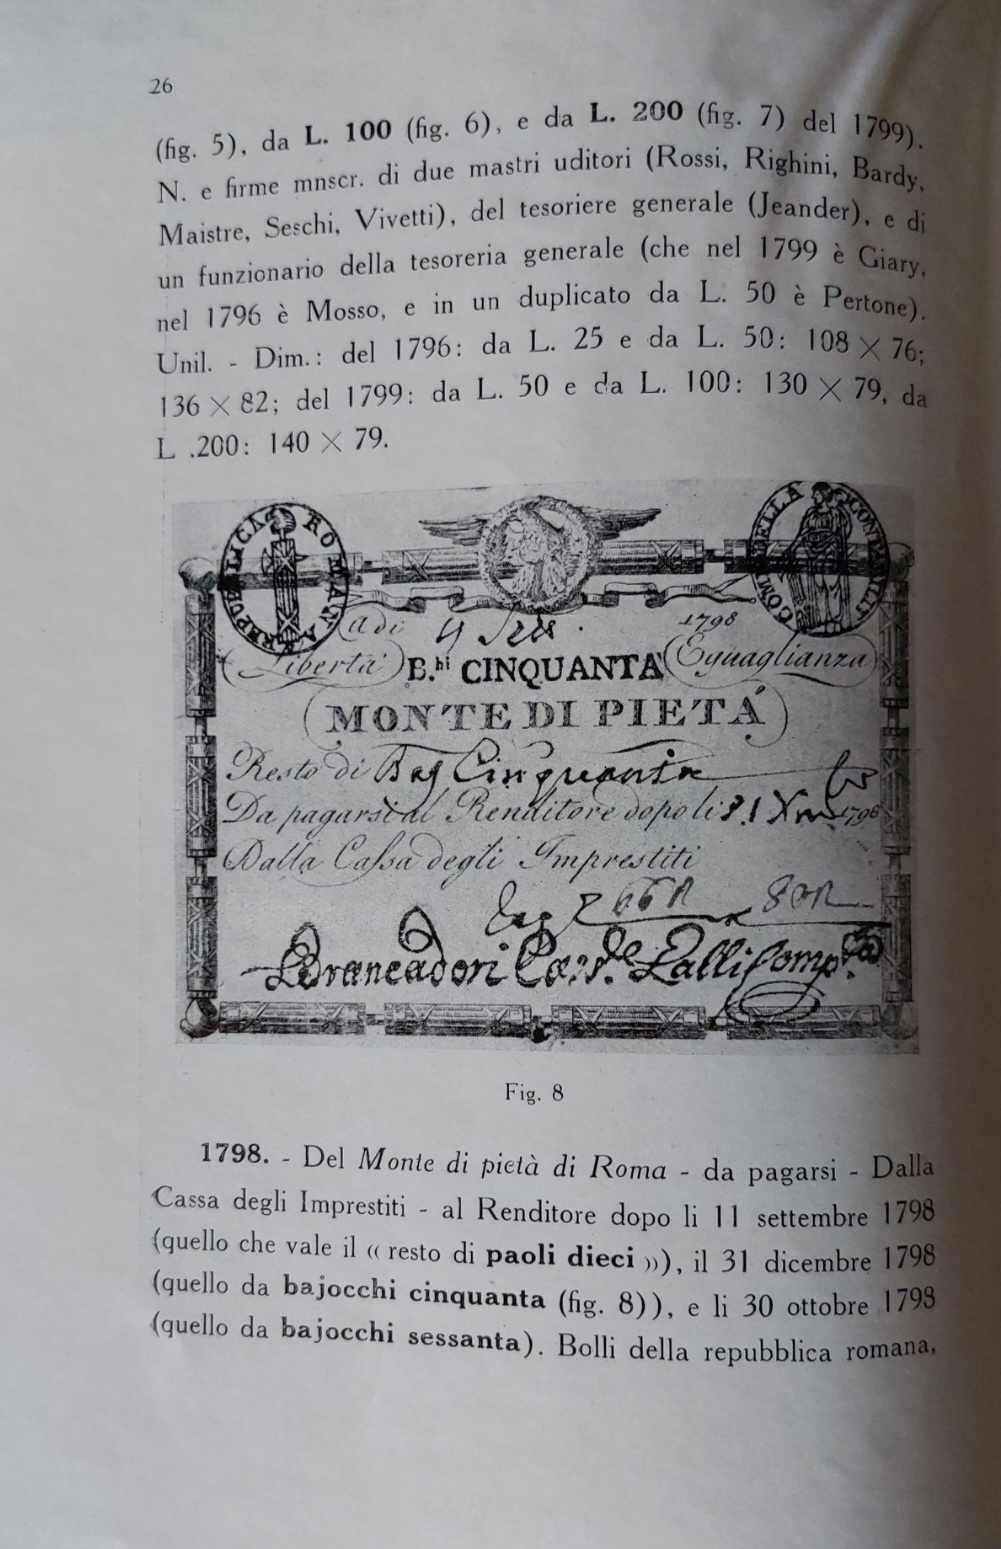 26
(fig. 5), da L. 100 (fig. 6), e da L. 200 (fig. 7) del 1799).
N. e firme mnscr. di due mastri uditori (Rossi, Righini, Bardy,
Maistre, Seschi, Vivetti), del tesoriere generale (Jeander), e di
un funzionario della tesoreria generale (che nel 1799 è Giary,
nel 1796 è Mosso, e in un duplicato da L. 50 è Pertone).
Unil. - Dim.: del 1796: da L. 25 e da L. 50: 108 × 76;
136 × 82; del 1799: da L. 50 e da L. 100: 130 × 79, da
L .200: 140 × 79.
REPUBLICA ROMANA
COM DELLA CONTABILIT
a di 1798
Libertà B.hi CINQUANTA Eguaglianza
MONTE DI PIETÁ
Resto di Baj Cinquanta
Da pagarsi al Renditore dopo li 31 Xm 1798
Dalla Cassa degli Imprestiti
Brancadori Lalli Comp.ta
Fig. 8
1798. - Del Monte di pietà di Roma - da pagarsi - Dalla
Cassa degli Imprestiti - al Renditore dopo li 11 settembre 1798
(quello che vale il « resto di paoli dieci »), il 31 dicembre 1798
(quello da bajocchi cinquanta (fig. 8)), e li 30 ottobre 1798
(quello da bajocchi sessanta). Bolli della repubblica romana,